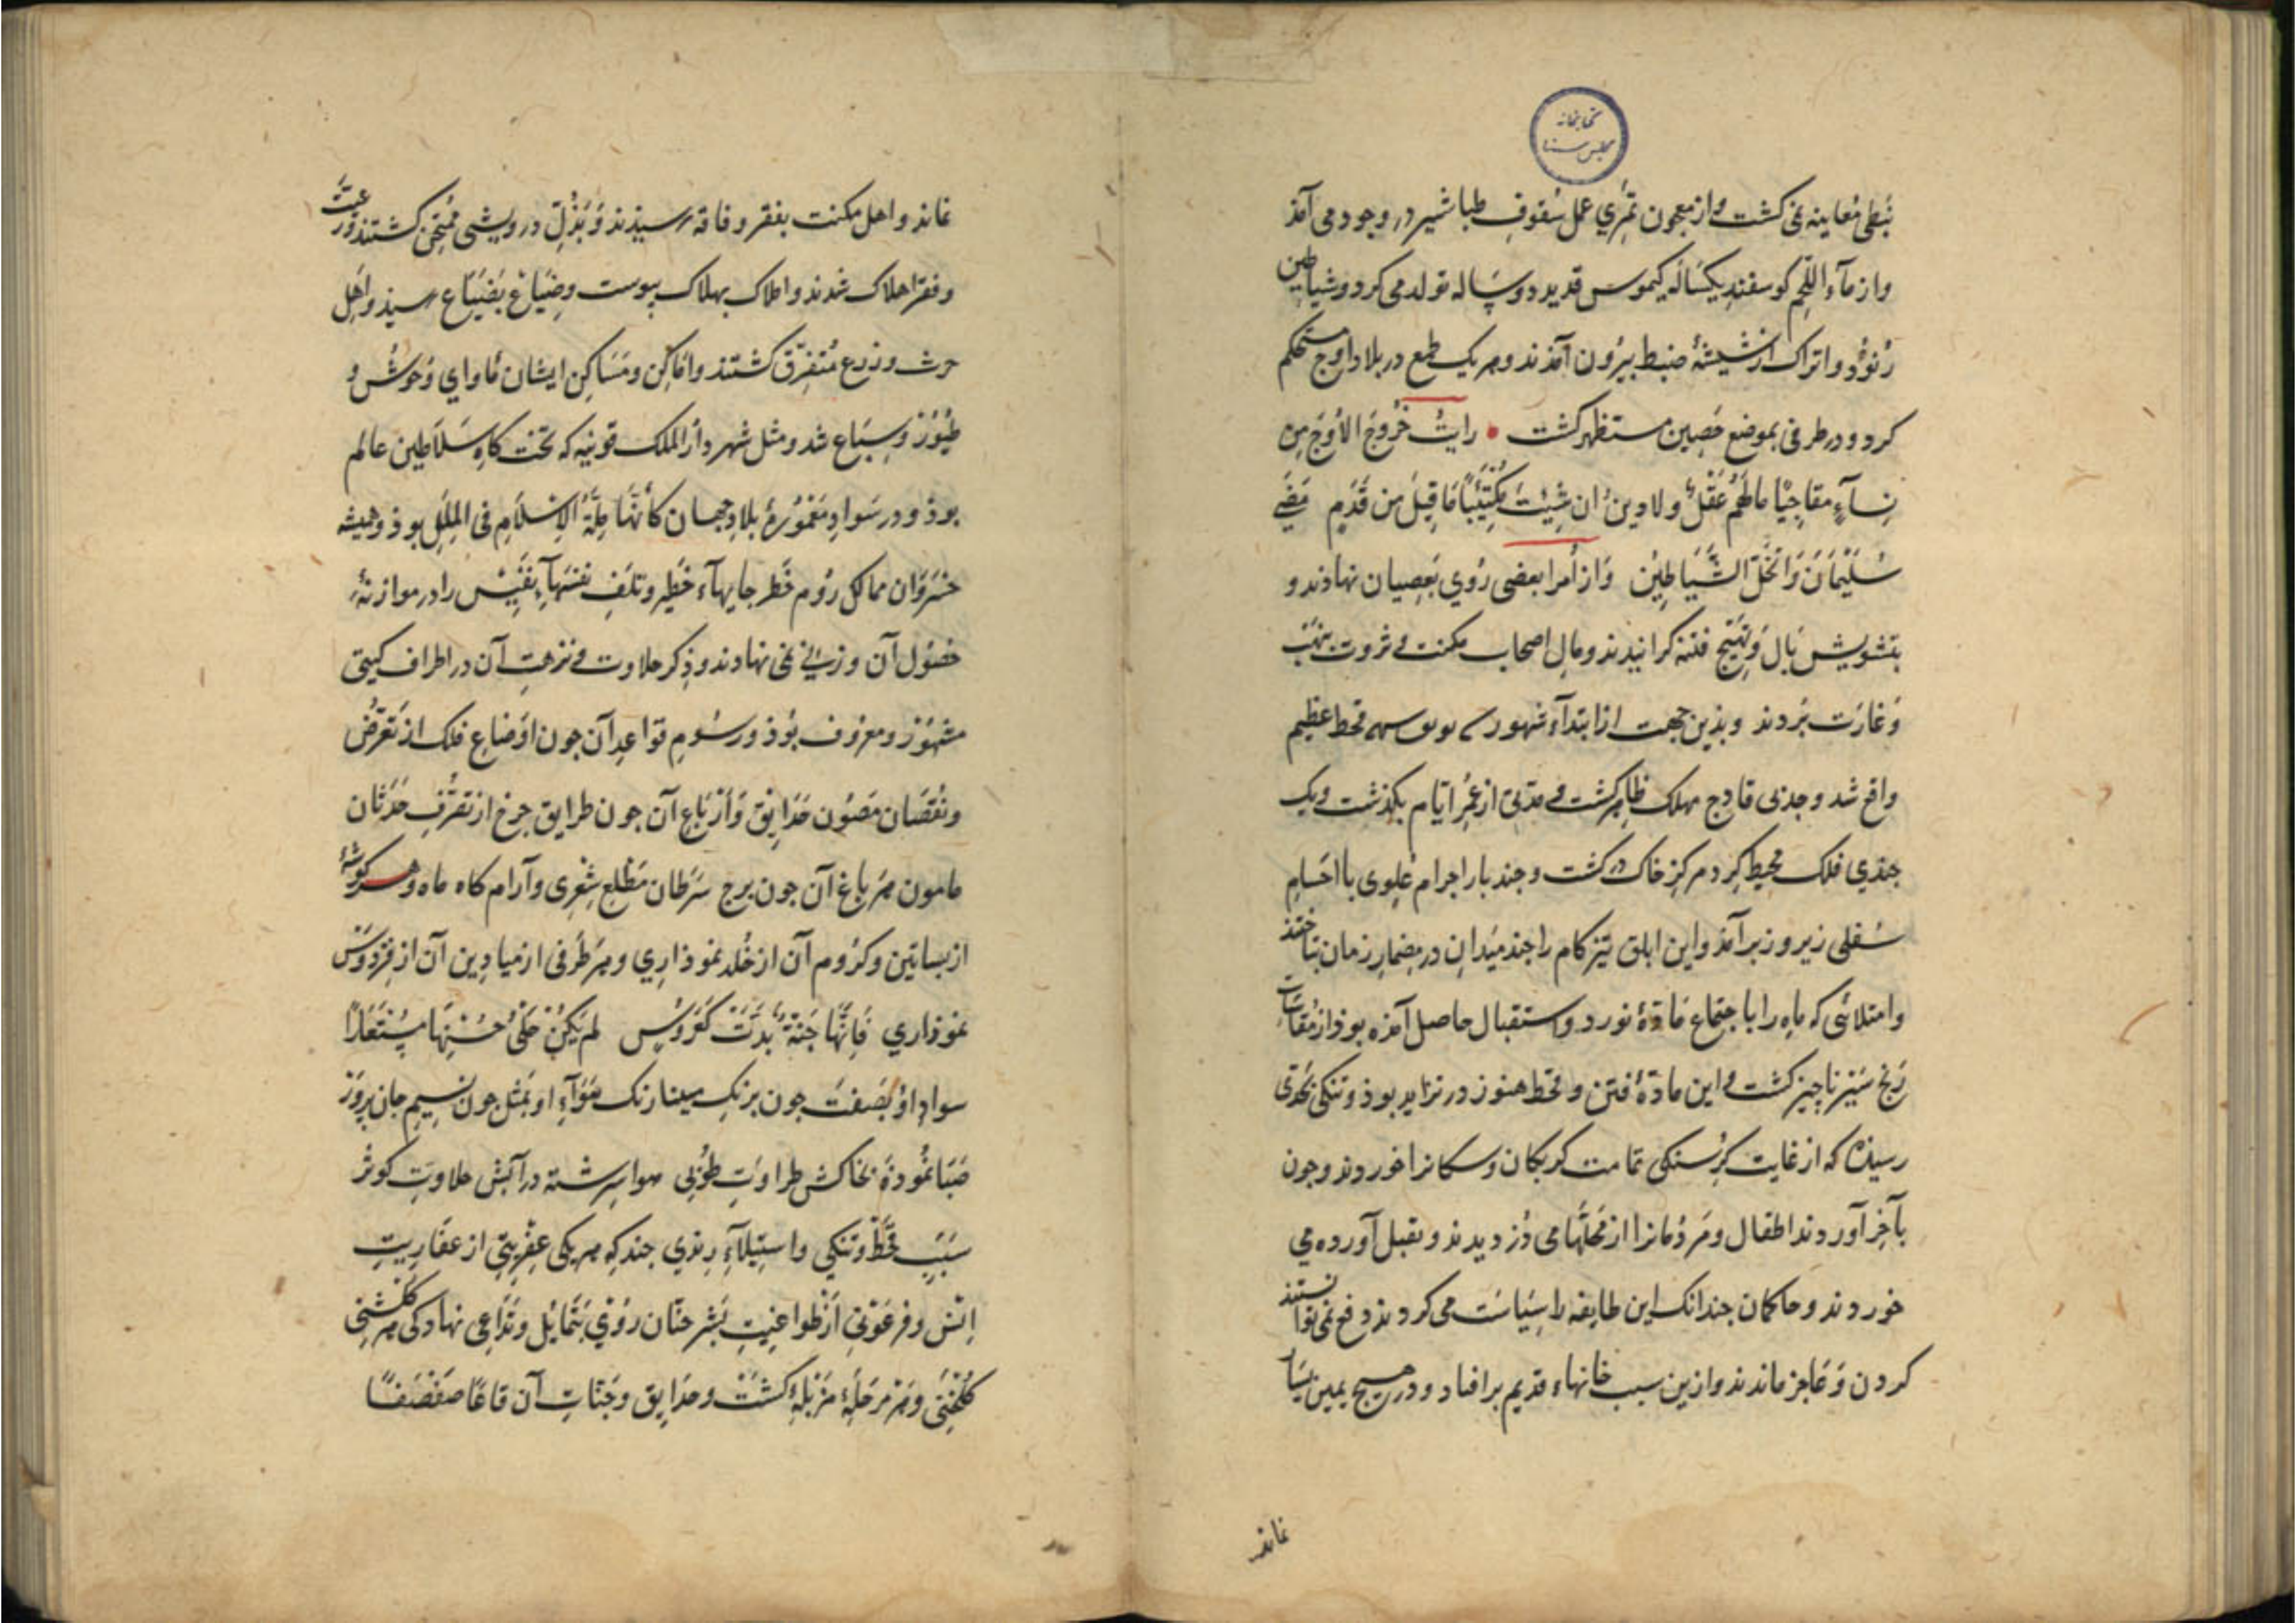 کتابخانه
مجلس سنا
نبطی معاینه نمی کشت و از معجون تمری عمل سفوف طباشیر در وجود می آمذ
و از مآء اللحم کوسفند یکساله کیموس قدید دوساله تولد می کرد و شیاطین
رنود و اتراک از شیشۀ ضبط بیرون آمذند و هر یک طمع در بلاد اوج مستحکم
کرد و در طرفی بموضع حصین مستظهر کشت رایت خروج الاوج من
نسآء مالهم عقل ولا دین ان شئت قیل من قدم مضی
سلیمان وانحل الشیاطین و از امرا بعضی روی بعصیان نهادند و
بتشویش بال و تهییج فتنه کرانیدند و مال اصحاب مکنت و ثروت بنهب
و غارت بردند و بذین جهت از ابتدآء شهور سنه قحط عظیم
واقع شد و جدبی قادح مهلک ظاهر کشت و مدتی از عمر ایام بکذشت و یک
جندی فلک محیط کرد مرکز خاک در کشت و جند بار اجرام علوی با اجسام
سفلی زیر و زبر آمذ و این ابلق تیز کام را جند میدان در مضمار زمان بتاختند
و امتلائی که ماه را با جتماع مادۀ نور در استقبال حاصل آمذه بوذ از مقاسات
رنج سیر ناچیز کشت و این مادۀ فتن و قحط هنوز در تزاید بوذ و تنکی بحدی
رسیذه که از غایت کرسنکی تمامت کربکان و سکانرا خوردند و جون
بآخر آوردند اطفال و مردمانرا از محلتها می دزدیدند و بقتل آورده می
خوردند و حاکمان جندانک این طایفه را سیاست می کردند دفع نمی توانستند
کردن و عاجز ماندند و ازین سبب خانهاء قدیم برافتاد و در هیچ یمین یسار
نماند
نماند و اهل مکنت بفقر و فاقه رسیذند و بذل درویشی ممتحن کشتند و رعیت
و فقرا هلاک شدند و املاک بهلاک بیوست و ضیاع بضیاع رسیذ و اهل
حرث و زرع متفرق کشتند و اماکن و مساکن ایشان ماوای وحوش و
طیور و سباع شد و مثل شهر دار الملک قونیه که تخت کاه سلاطین عالم
بوذ و در سواد معمورۀ بلاد جهان کأنها ملة الاسلام فی الملل بوذ و همیشه
خسروان ممالک روم خطر جایهآء خطیر و تلف نفسهآء نفیس را در موازنۀ
حصول آن وزنی نمی نهادند و ذکر حلاوت و نزهت آن در اطراف کیتی
مشهور و معروف بوذ و رسوم قواعد آن جون اوضاع فلک از تعرض
و نقصان مصون حدایق و ارباع آن جون طرایق جرخ از تصرف حدثان
مامون هر باغ آن جون برج سرطان مطلع شعری و آرام کاه ماه و هر کوشۀ
از بساتین و کروم آن از خلد نموذاری و هر طرفی از میادین آن از فردوس
نموذاری فانها جنة بدت کعروس لم یکن حلی حسنها مستعارا
سواد او بصفت جون برنک مینا رنک هوآء او بمثل جون نسیم جان پرور
صبا نموذه بخاکش طراوت طوبی هوا سرشته در آبش حلاوت کوثر
سبب قحط و تنکی و استیلآء رندی جند که هر یکی عفریتی از عفاریت
انس و فرعونی از طواغیت بشر حنان روی بتمایل و تداعی نهاد کی هر کلشنی
کلخنی و هر مرحلۀ مزبلۀ کشت و حدایق و جنات آن قاعا صفصفا